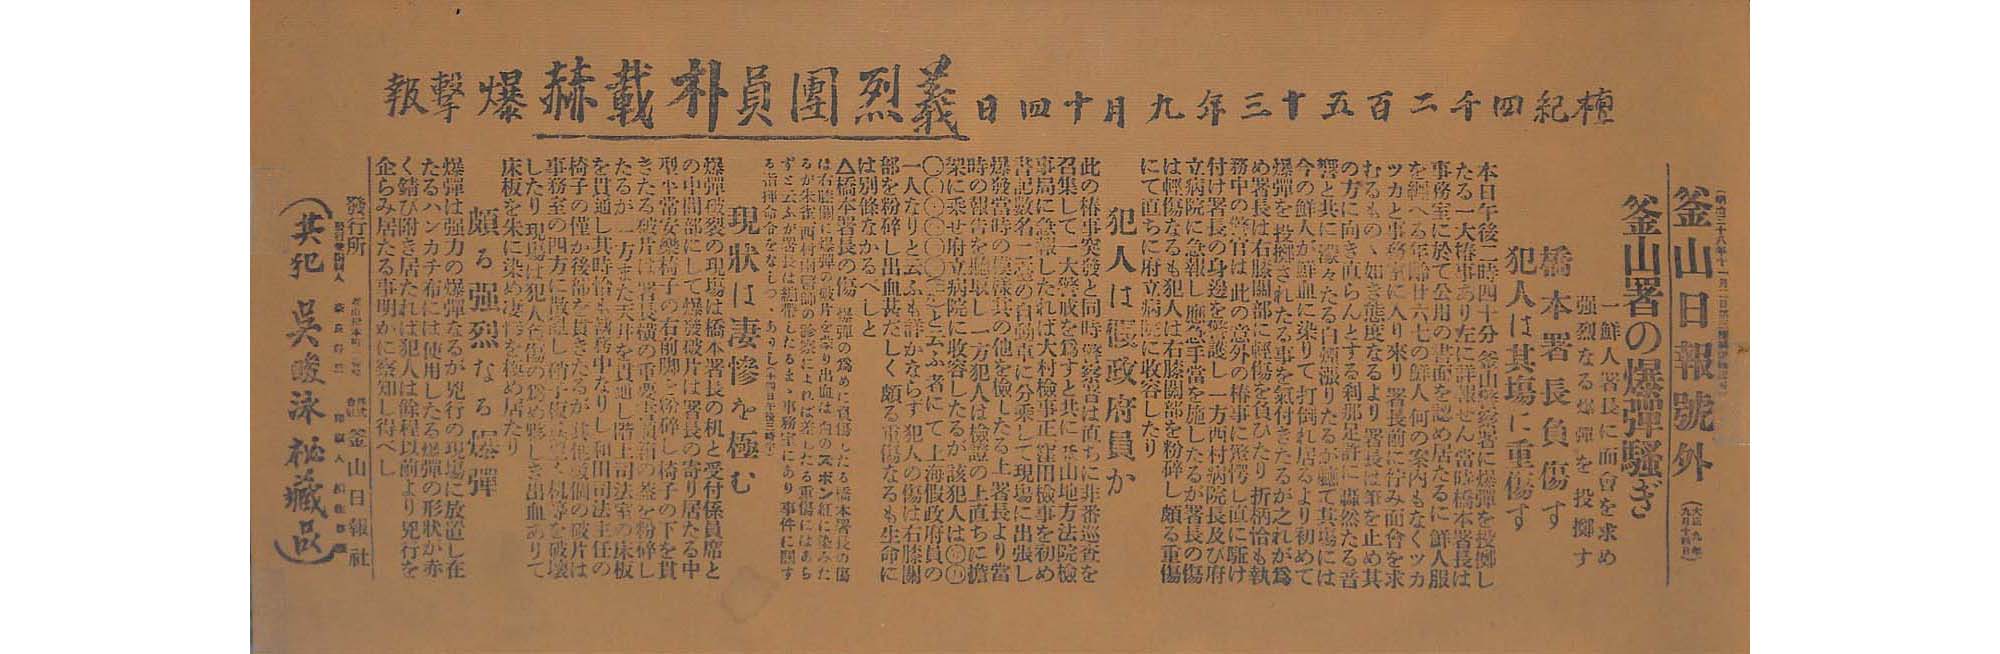 檀紀四千二百五十三年九月十四日義烈團員朴載赫爆擊報
釜山日報號外
（大正九年九月十四日）
釜山署の爆彈騷ぎ
一鮮人署長に面會を求め
强烈なる爆彈を投擲す
橋本署長負傷す
犯人は其場に重傷す
本日午後二時四十分釜山警察署に爆彈を投擲し
たる一大椿事あり左に詳報せん當時橋本署長は
事務室に於て公用の書面を認め居たるに鮮人服
を纒へる年齡廿六七の鮮人何の案内もなくツカ
ツカと事務室に入り來り署長前に佇み面會を求
むるものゝ如き態度なるより署長は筆を止め其
の方に向き直らんとする刹那足許に轟然たる音
響と共に濛々たる白煙漲りたるが軈て其場には
今の鮮人が鮮血に染りて打倒れ居るより初めて
爆彈を投擲されたる事を氣付きたるが之れが爲
め署長は右膝關部に輕傷を負ひたり折柄恰も執
務中の警官は此の意外の椿事に驚愕し直に駈け
付け署長の身邊を警護し一方西村病院長及び府
立病院に急報し應急手當を施したるが署長の傷
は輕傷なるも犯人は右膝關部を粉碎し頗る重傷
にて直ちに府立病院に收容したり
犯人は假政府員か
此の椿事突發と同時警察署は直ちに非番巡査を
召集して一大警戒を爲すと共に釜山地方法院檢
事局に急報したれば大村檢事正窪田檢事を初め
書記數名二臺の自動車に分乘して現場に出張し
爆發當時の模樣其の他を檢したる上署長より當
時の報告を聽取し一方犯人は檢證の上直ちに擔
架に乘せ府立病院に收容したるが該犯人は〇〇
〇〇〇〇〇〇〇と云ふ者にて上海假政府員の
一人なりと云ふも詳かならず犯人の傷は右膝關
部を粉碎し出血甚だしく頗る重傷なるも生命に
は別條なかるべしと
△橋本署長の傷 爆彈の爲めに負傷したる橋本署長の傷
は右膝關に爆彈の破片を蒙り出血は白のズボン紅に染みた
るが朱雀西村兩醫師の診察によれば差したる重傷にはあら
ずと云ふが署長は繃帶したるまゝ事務室にあり事件に關す
る指揮命令をなしつゝあり（十四日午後三時半）
現狀は凄慘を極む
爆彈破裂の現場は橋本署長の机と受付係員席と
の中間部にして爆發破片は署長の寄り居たる中
型半常安樂椅子の右前脚を粉碎し椅子の下を貫
きたる破片は署長橫の重要書類箱の蓋を粉碎し
たるが一方また天井を貫通し階上司法室の床板
を貫通し其時恰も執務中なりし和田司法主任の
椅子の僅か後部を貫きたるが其他數個の破片は
事務室の四方に散亂し硝子板壁机等を破壞
したり現場は犯人負傷の爲め夥しき出血ありて
床板を朱に染め凄愴を極め居たり
頗る强烈なる爆彈
爆彈は强力の爆彈なるが兇行の現場に放置し在
たるハンカチ布には使用したる爆彈の形狀か赤
く錆び附き居たれば犯人は餘程以前より兇行を
企らみ居たる事明かに察知し得べし
發行所 株式會社 釜山日報社
（共犯 吳畯泳秘藏品）